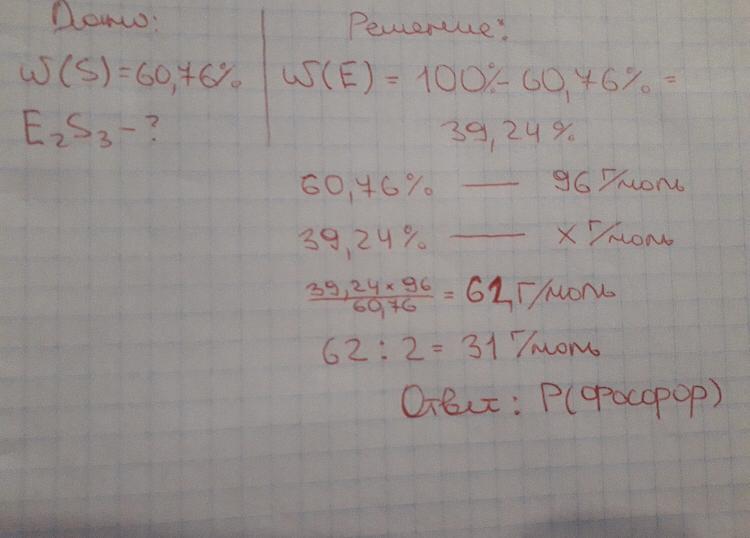 Дано:
W(S)=60,76%
E₂S₃-?
Решение:
W(E) = 100%-60,76% =
39,24%
60,76% — 96 г/моль
39,24% — x г/моль
39,24×96/60,76 = 62 г/моль
62:2= 31 г/моль
Ответ: P(Фосфор)